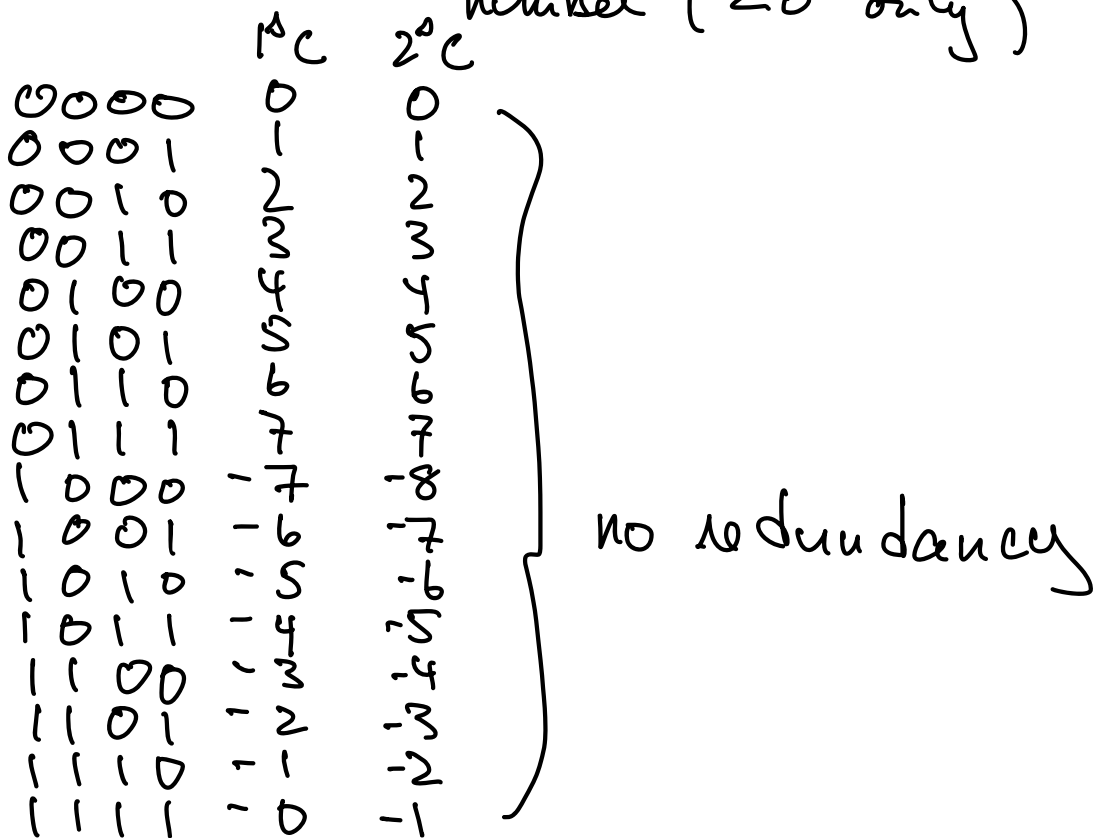 number ( only )
1ˢC 2ˢC
0000 0 0
0001 1 1
0010 2 2
0011 3 3
0100 4 4
0101 5 5
0110 6 6
0111 7 7
1000 -7 -8
1001 -6 -7
1010 -5 -6
1011 -4 -5
1100 -3 -4
1101 -2 -3
1110 -1 -2
1111 -0 -1
no redundancy